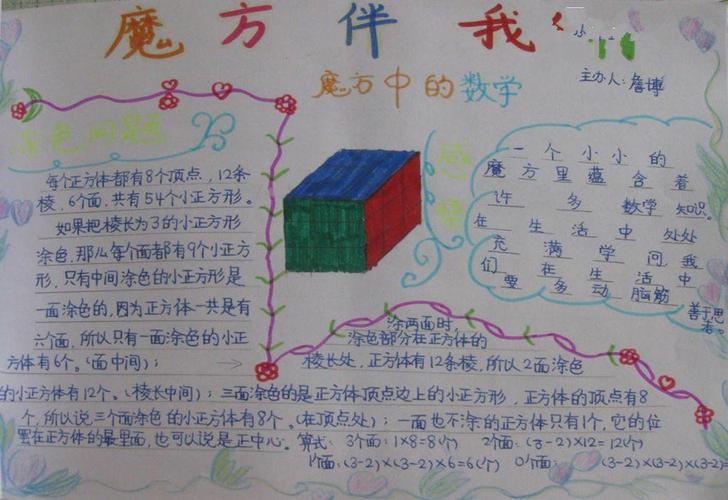 魔方伴我
小
魔方中的数学
主办人：詹博
涂色问题
每个正方体都有8个顶点，12条
棱，6个面，共有54个小正方形。
如果把棱长为3的小正方形
涂色，那么每个面都有9个小正方
形，只有中间涂色的小正方形是
一面涂色的，因为正方体一共是有
六个面，所以只有一面涂色的小正
方体有6个。（面中间）；
感
一个小小的
魔方里蕴含着
许多数学知识。
在生活中处处
充满学问，我
们在生活中
要多动脑筋
善于思
涂两面时，
涂色部分在正方体的
棱长处，正方体有12条棱，所以2面涂色
的小正方体有12个。（棱长中间）；三面涂色的是正方体顶点边上的小正方形，正方体的顶点有8
个，所以说三个面涂色的小正方体有8个。（在顶点处）；一面也不涂的正方体只有1个，它的位
置在正方体的最里面，也可以说是正中心。算式：3个面：1×8=8（个） 2个面：（3-2）×12=12（个）
1个面：（3-2）×（3-2）×6=6（个） 0个面：（3-2）×（3-2）×（3-2）=